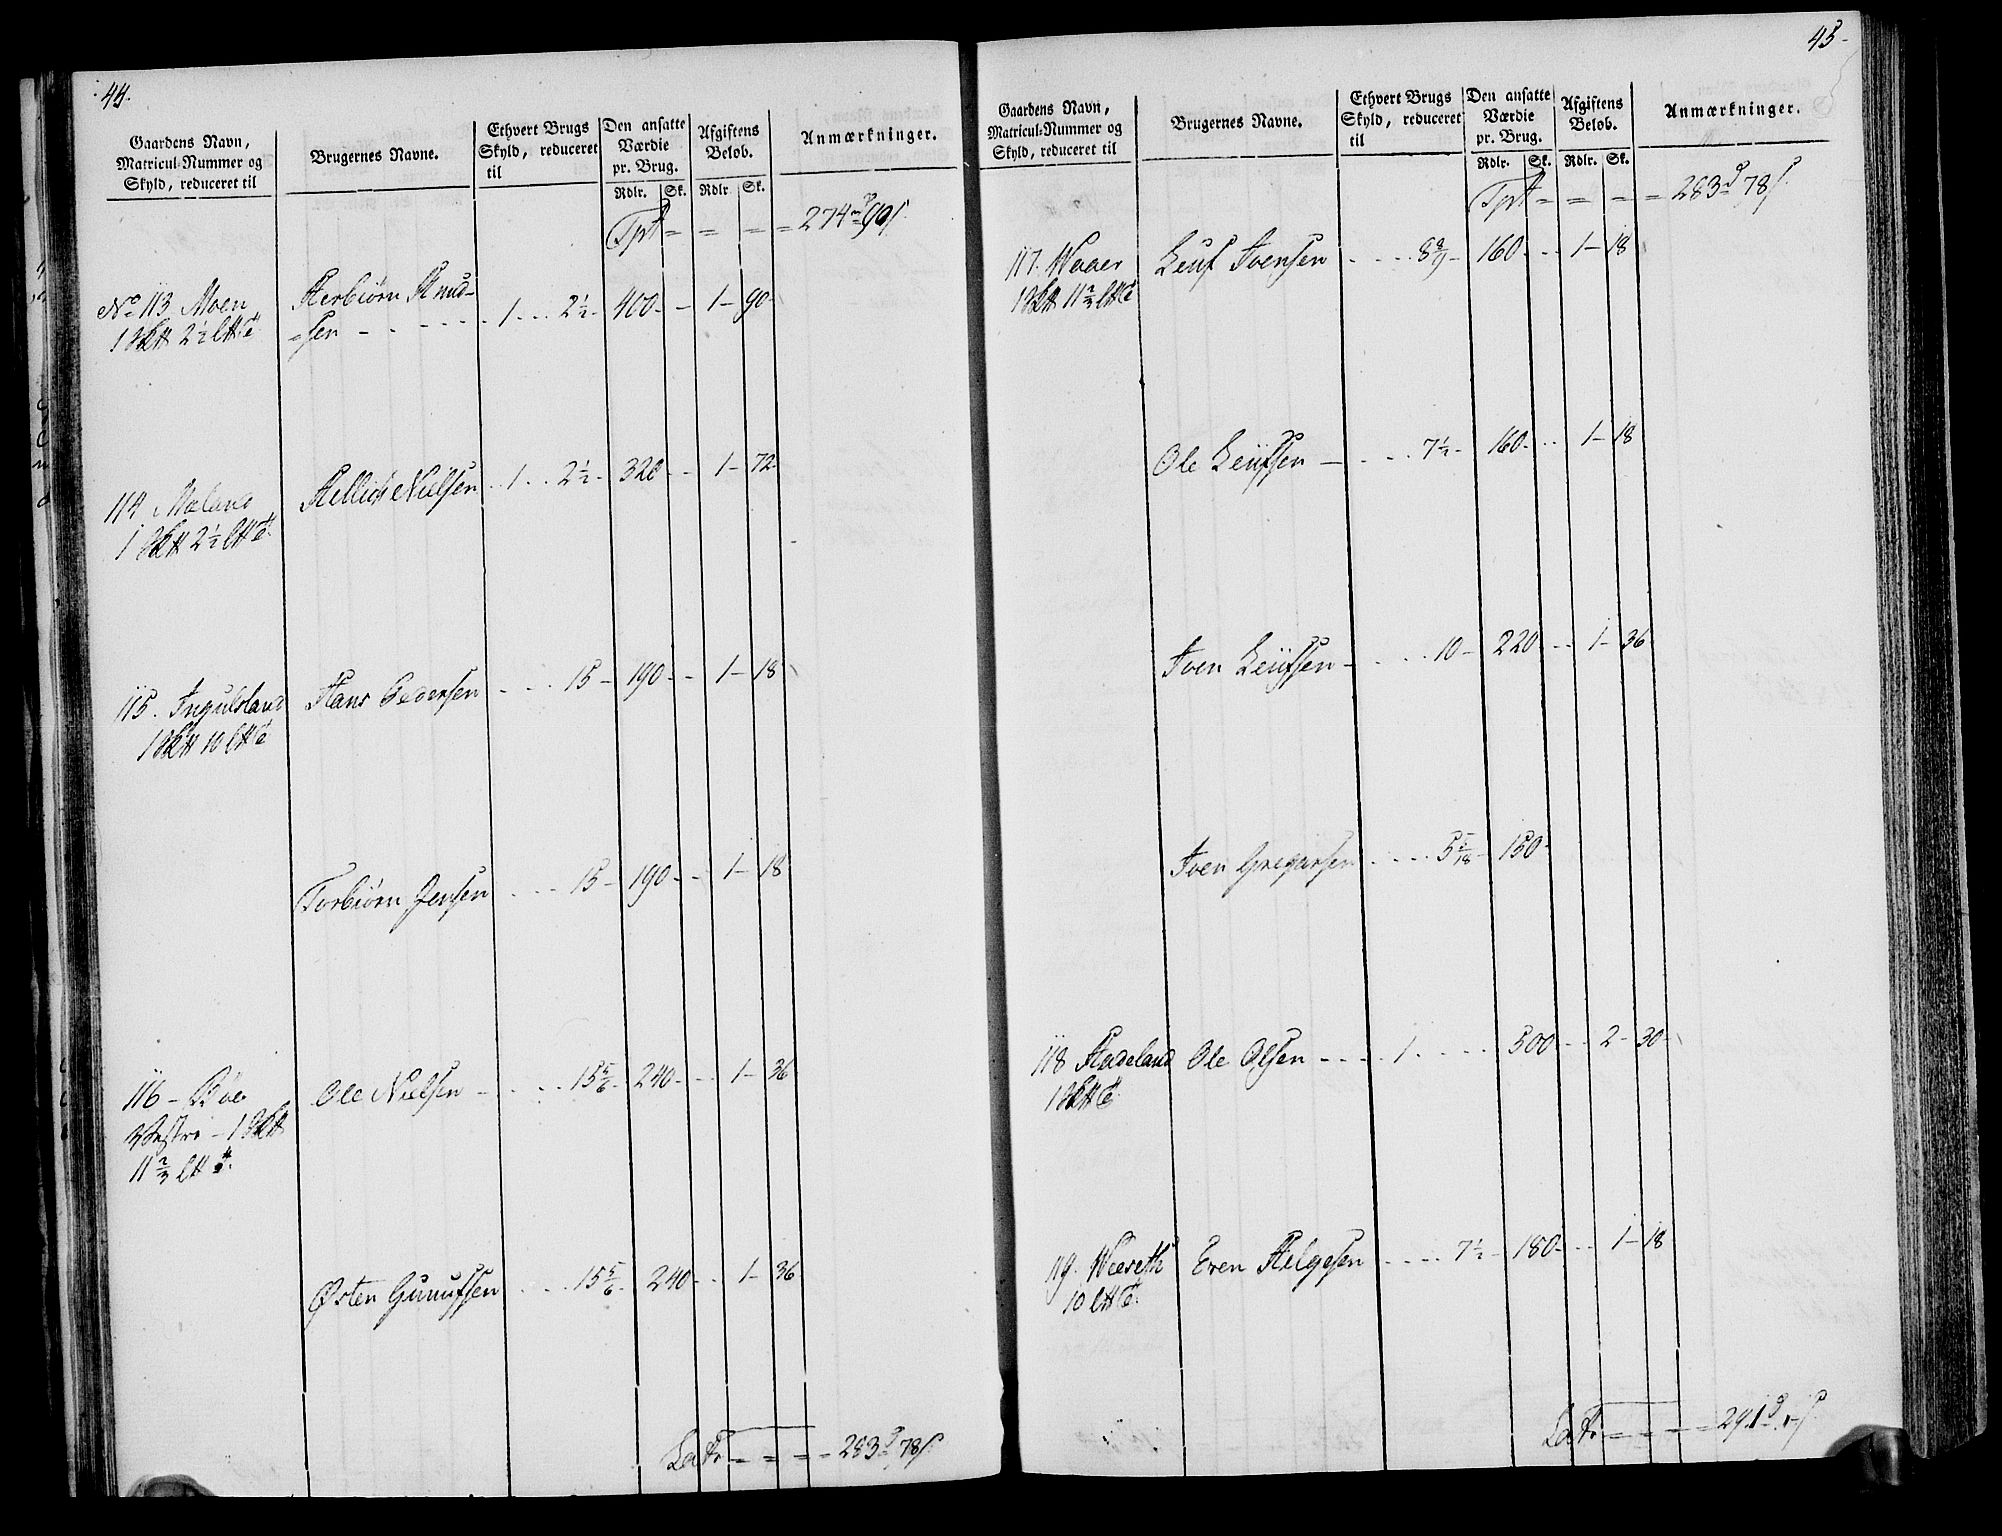 44.
Gaardens Navn, Matricul-Nummer og Skyld, reduceret til
Brugernes Navne.
Ethvert Brugs Skyld, reduceret til
Den ansatte Værdie pr. Brug.
Afgiftens Beløb.
Anmærkninger.
Rdlr. Sk. Rdlr. Sk.
Tpt = = = = 274 90
No 113 Moen
1 2½
Herbiørn Knud-
=sen - - - - - 1 . . 2½ - 400 - - 1 - 90
114 Moland Hellich Nielsen . . 1 . . 2½ - 320 - - 1 - 72
1 2½
115. Ingulsland Hans Pedersen - - - 15 - 190 - - 1 - 18
1 10
Torbiørn Jensen . . . 15 - 190 - - 1 - 18
116 - Bøe Ole Nielsen - . . . 15 5/6 - 240 - - 1 - 36
Vestre - 1
11 2/3
Østen Gunufsen . . . 15 5/6 - 240 - - 1 - 36
Latr = = = = 283 78
45
Gaardens Navn, Matricul-Nummer og Skyld, reduceret til
Brugernes Navne.
Ethvert Brugs Skyld, reduceret til
Den ansatte Værdie pr. Brug.
Afgiftens Beløb.
Anmærkninger.
Rdlr. Sk. Rdlr. Sk.
Tpt = = = = 283 78
117. Waaer Leuf Ivensen - - - - 8 8/9 - 160 - - 1 - 18
1 11 2/3
Ole Leufsen - - - - 7½ - 160 - - 1 - 18
Iven Leufsen - - - - 10 - 220 - - 1 - 36
Iven Gregarsen - - - - 5 5/18 - 150 -
118 Hadeland Ole Olsen - - - - 1 . - - - 500 - - 2 - 30
1
119. Weereth Even Helgesen - - - - 7½ - 180 - - 1 - 18
10
Latr = = = = 291